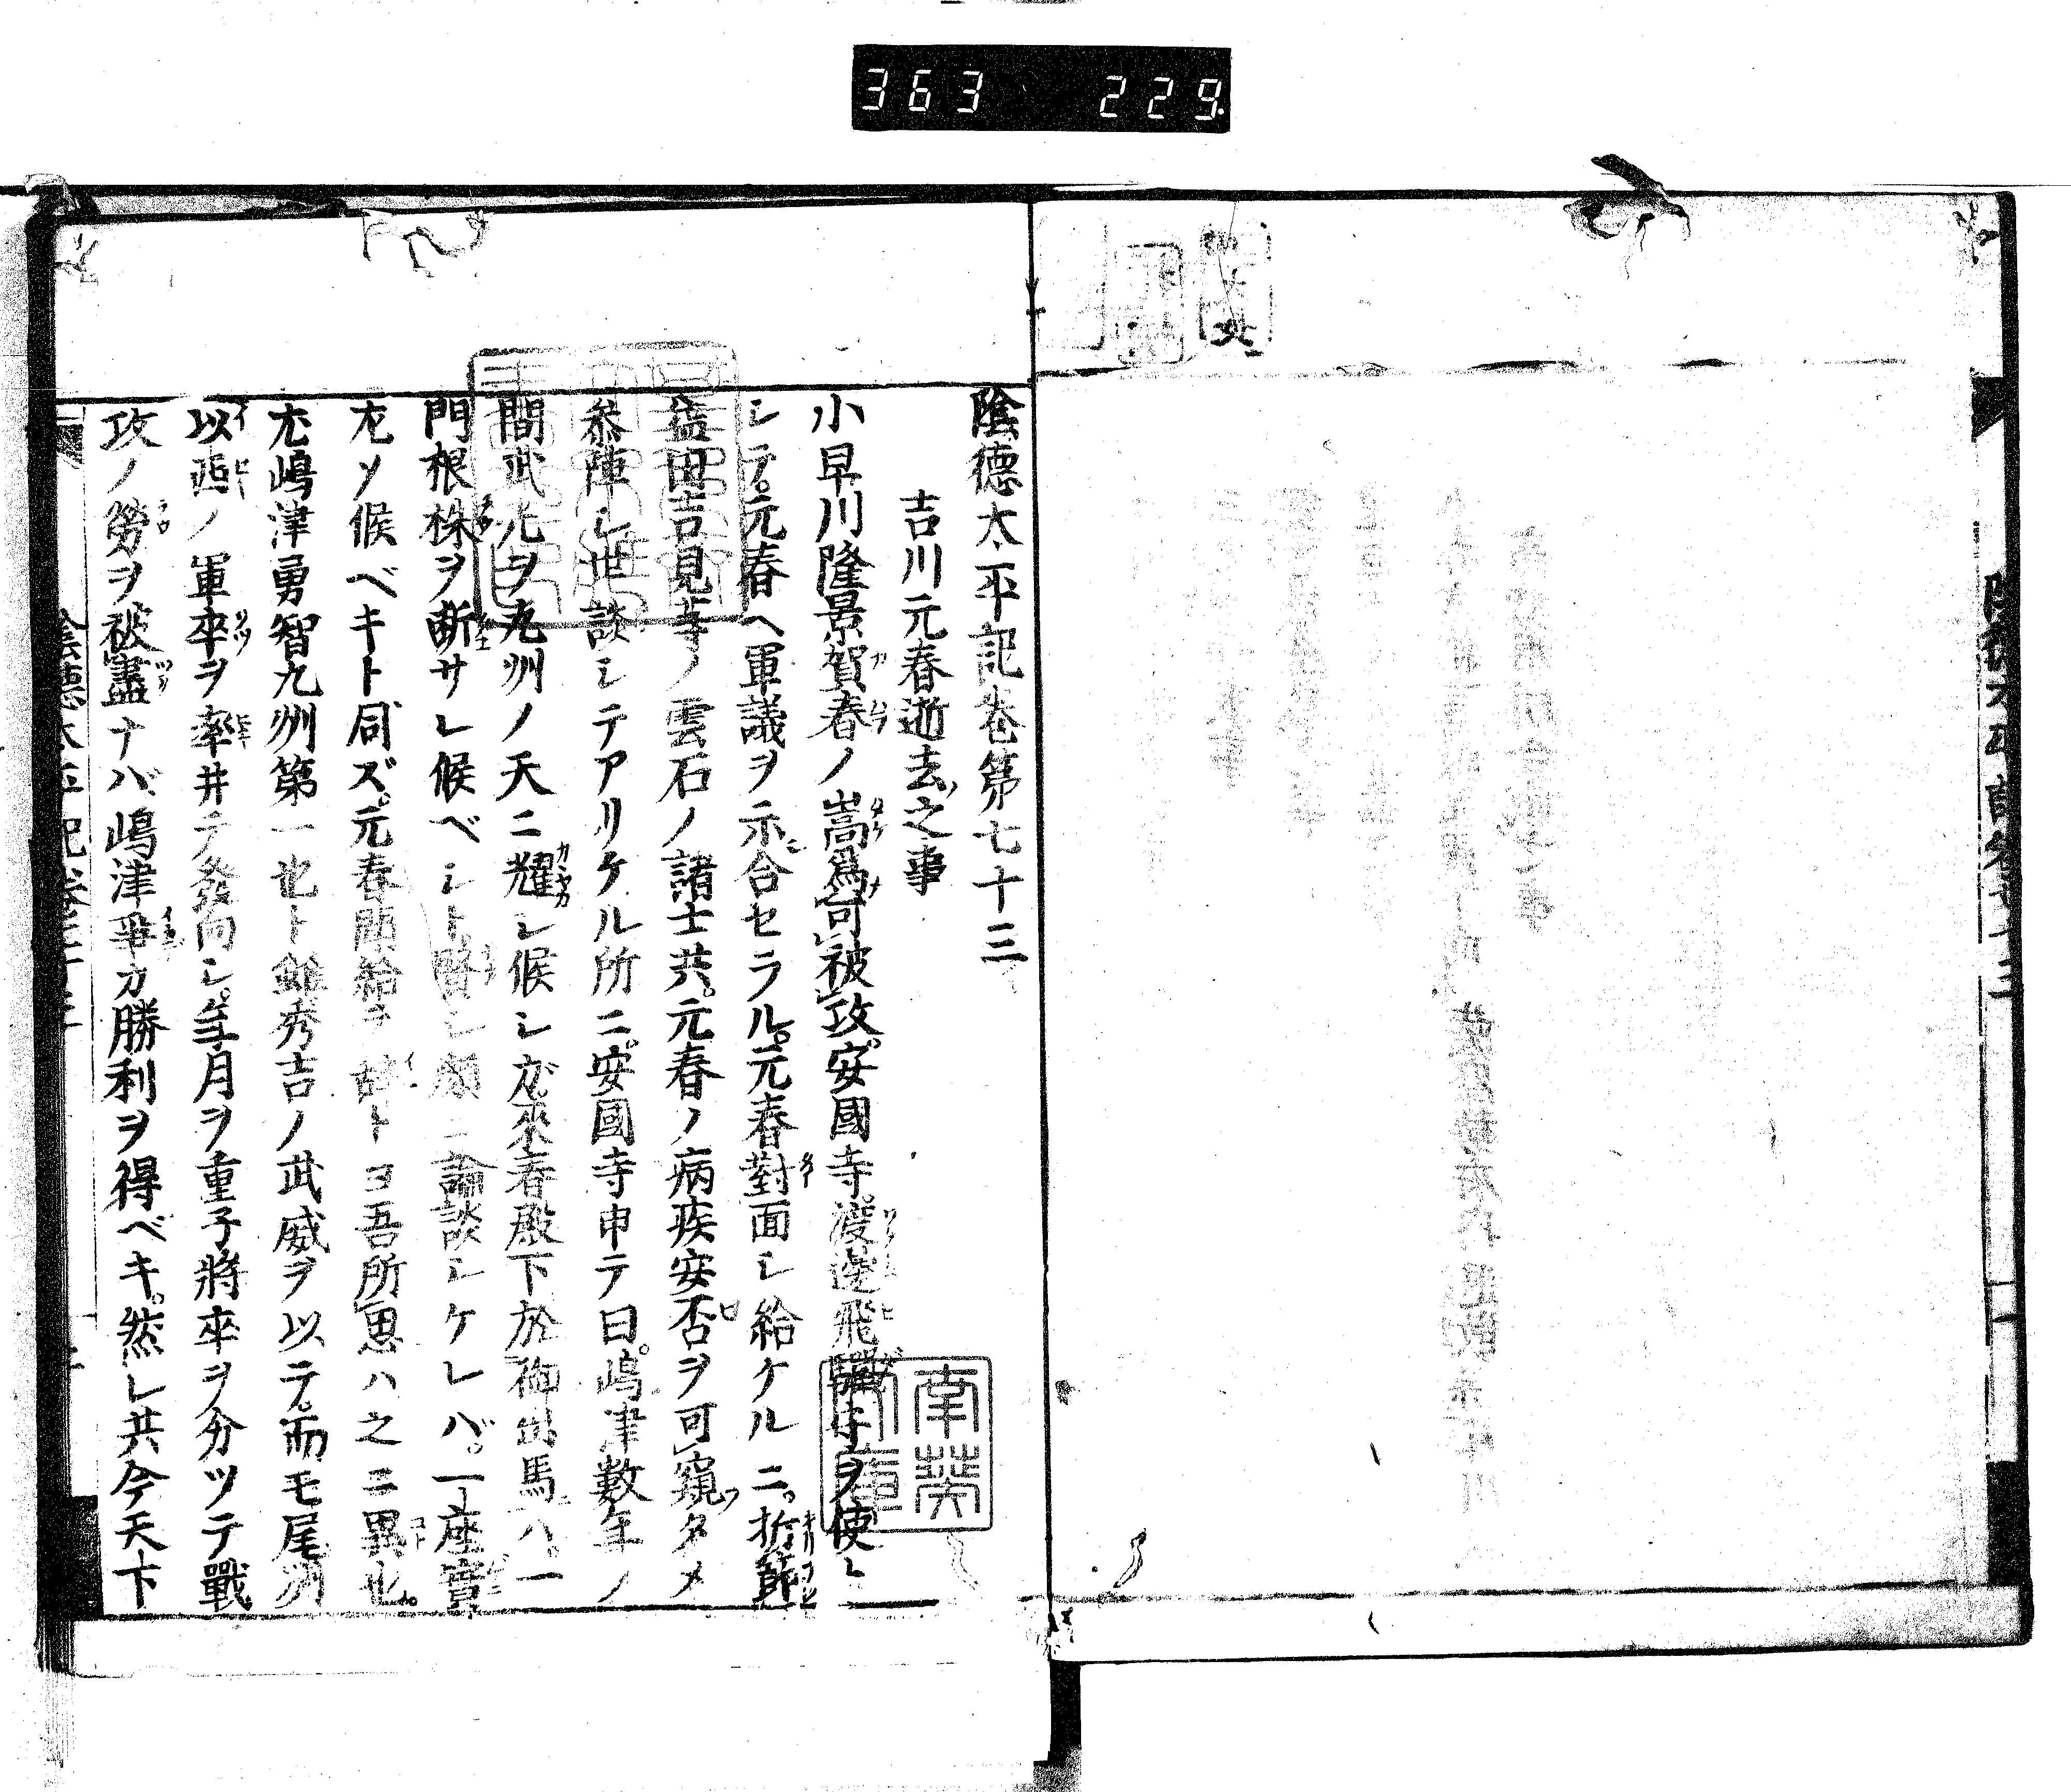 363 229
陰德太平記卷第七十三
吉川元春逝去之事
小早川隆景賀春ノ嵩爲可被攻安國寺渡邊飛驒守ヲ使ト
シテ。元春ヘ軍議ヲ示合セラル。元春對面シ給ケルニ。折節
益田吉見等ノ雲石ノ諸士共。元春ノ病疾安否ヲ可窺タメ
參陣シ世談シテアリケル所ニ。安國寺申テ曰。嶋津數年ノ
間武光ヲ九州ノ天ニ耀シ候シガ。來春殿下於御出馬ハ。一
門根株ヲ断サレ候ベシト賢シ顔ニ論談シケレバ。一座實
尤ソ候ベキト同ズ。元春聞給テ ト ヨ吾所思ハ之ニ異也。
尤嶋津勇智九州第一也ト雖秀吉ノ武威ヲ以テ。而モ尾州
以西ノ軍卒ヲ率井テ發向シ。年月ヲ重子將卒ヲ分ツテ戰
攻ノ勞ヲ被盡ナバ、嶋津爭カ勝利ヲ得ベキ。然レ共今天下
陰德太平記卷七十三
南葵文庫